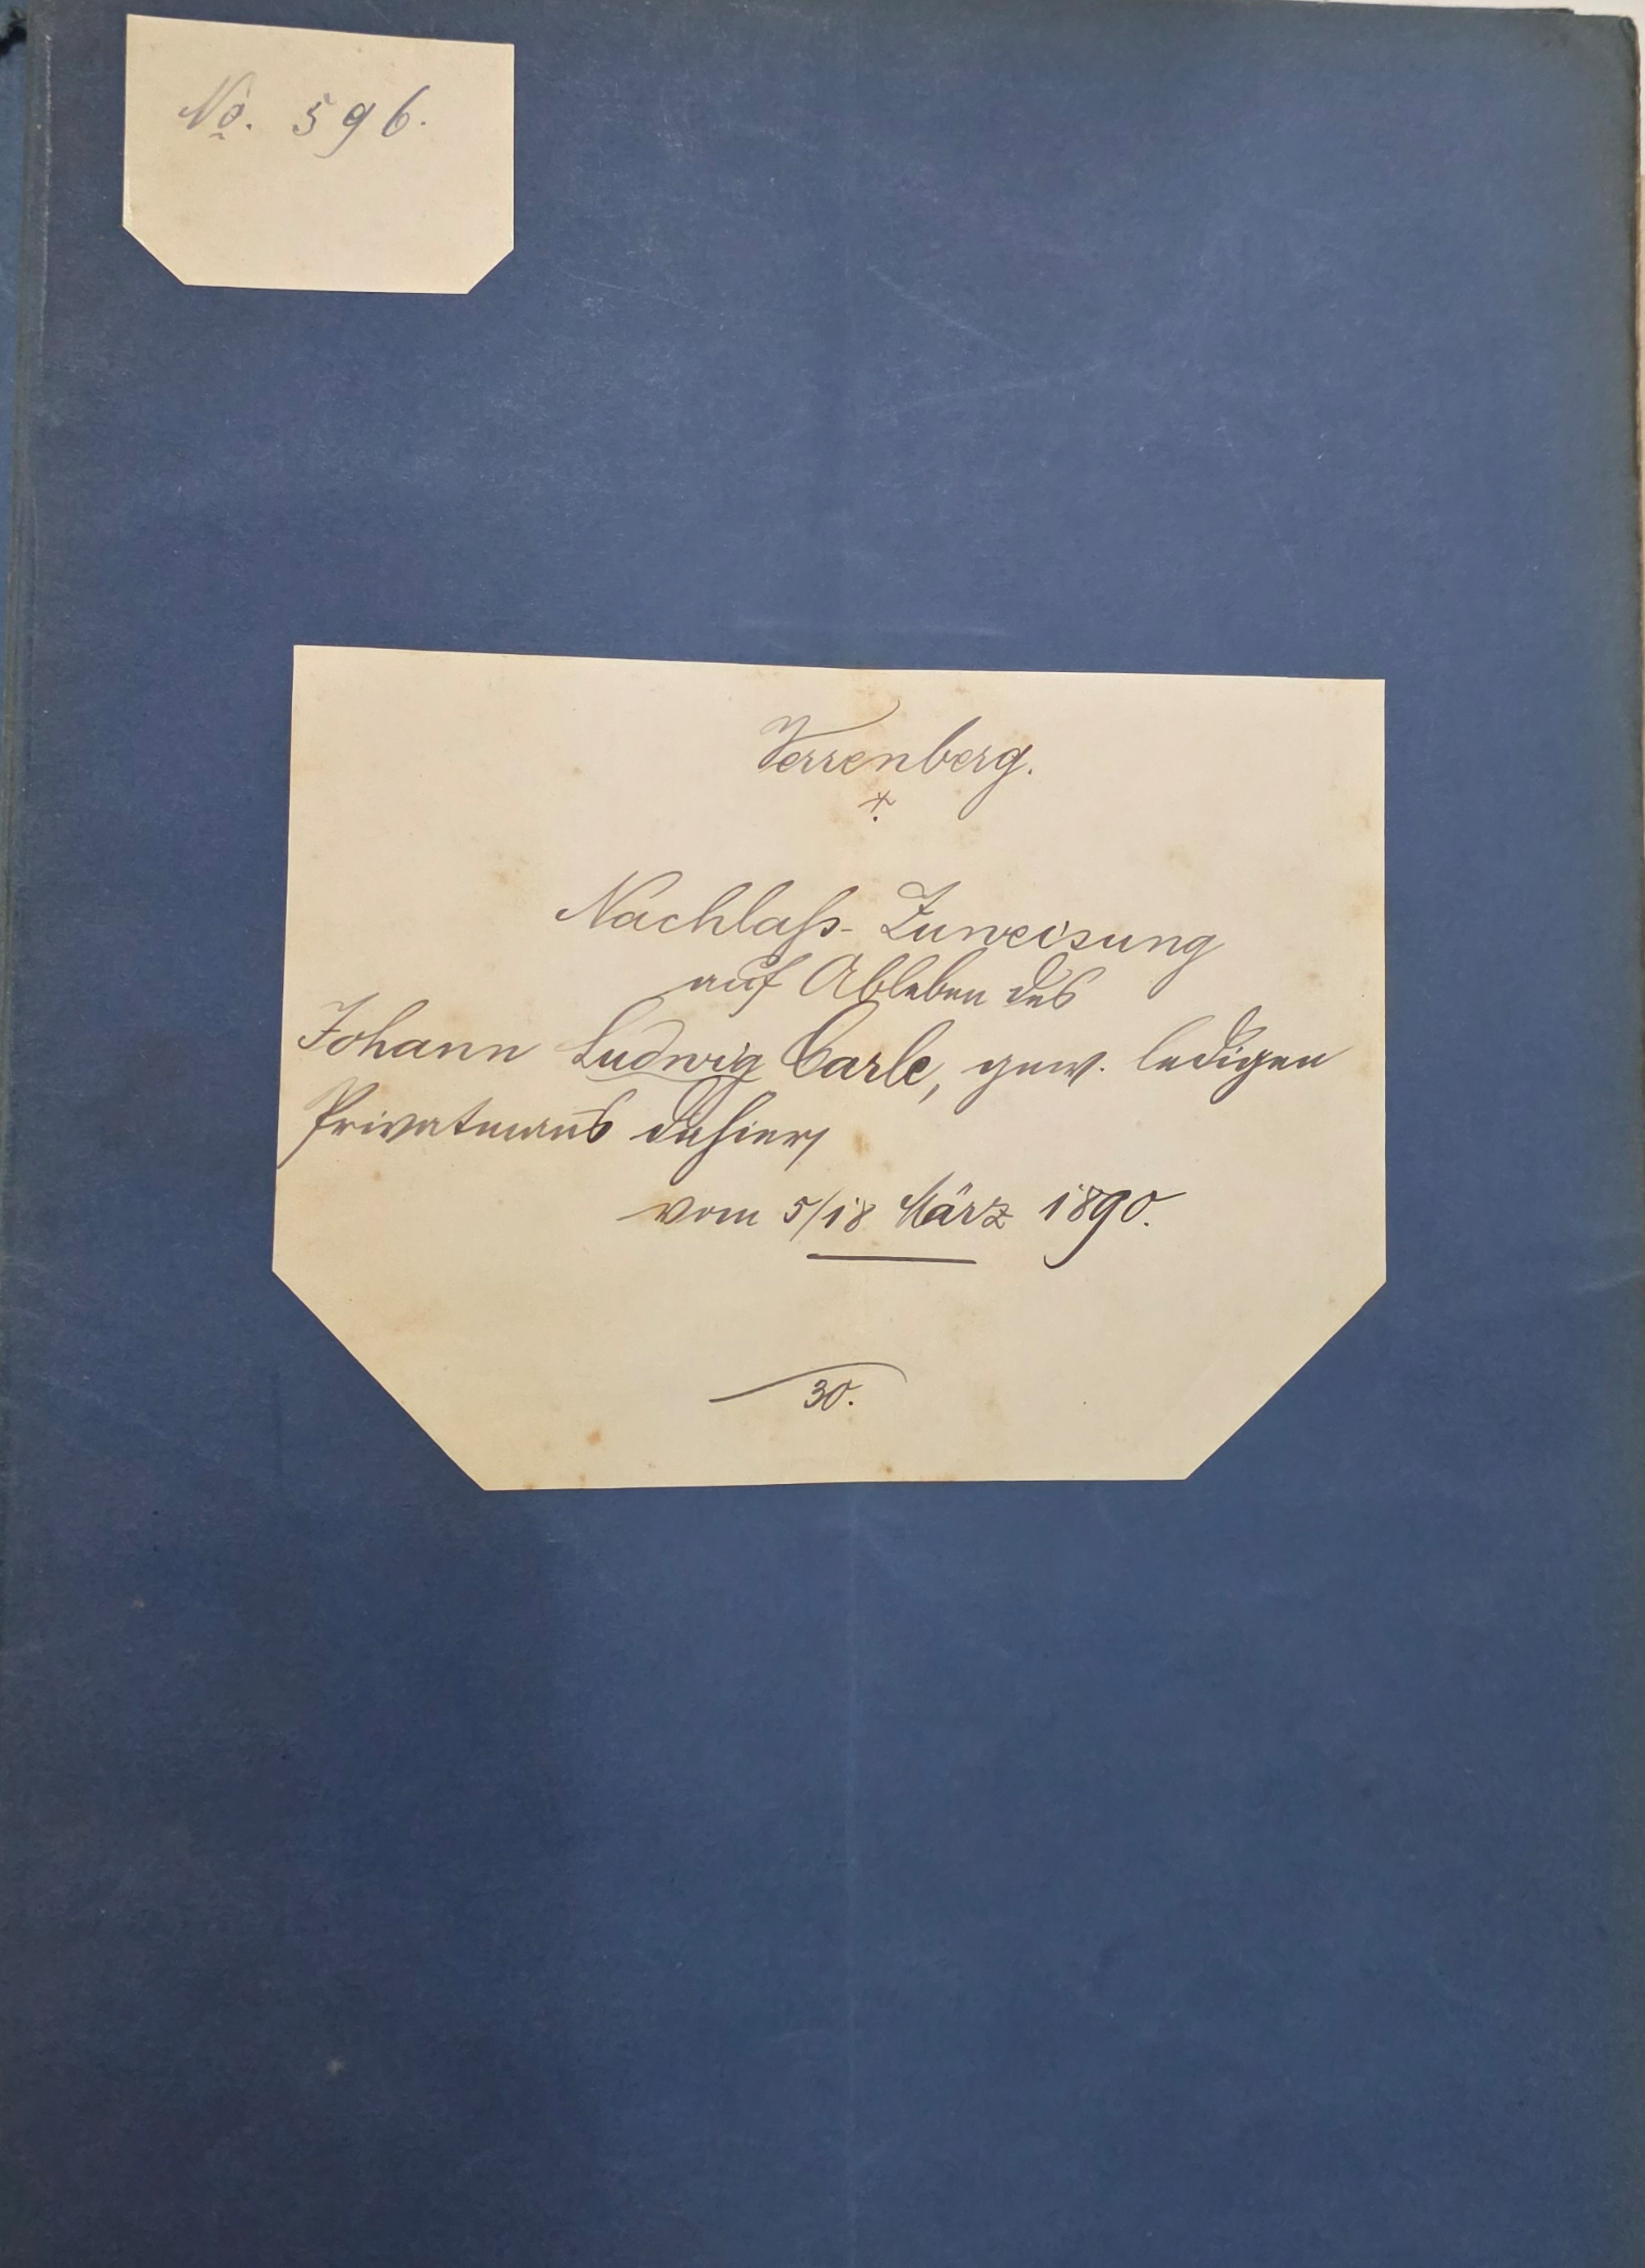 No. 596.
Verrenberg.
Nachlaß-Zuweisung
auf Ableben des
Johann Ludwig Carle, gew. ledigen
Privatmanns dahier,
vom 5/18 März 1890.
30.